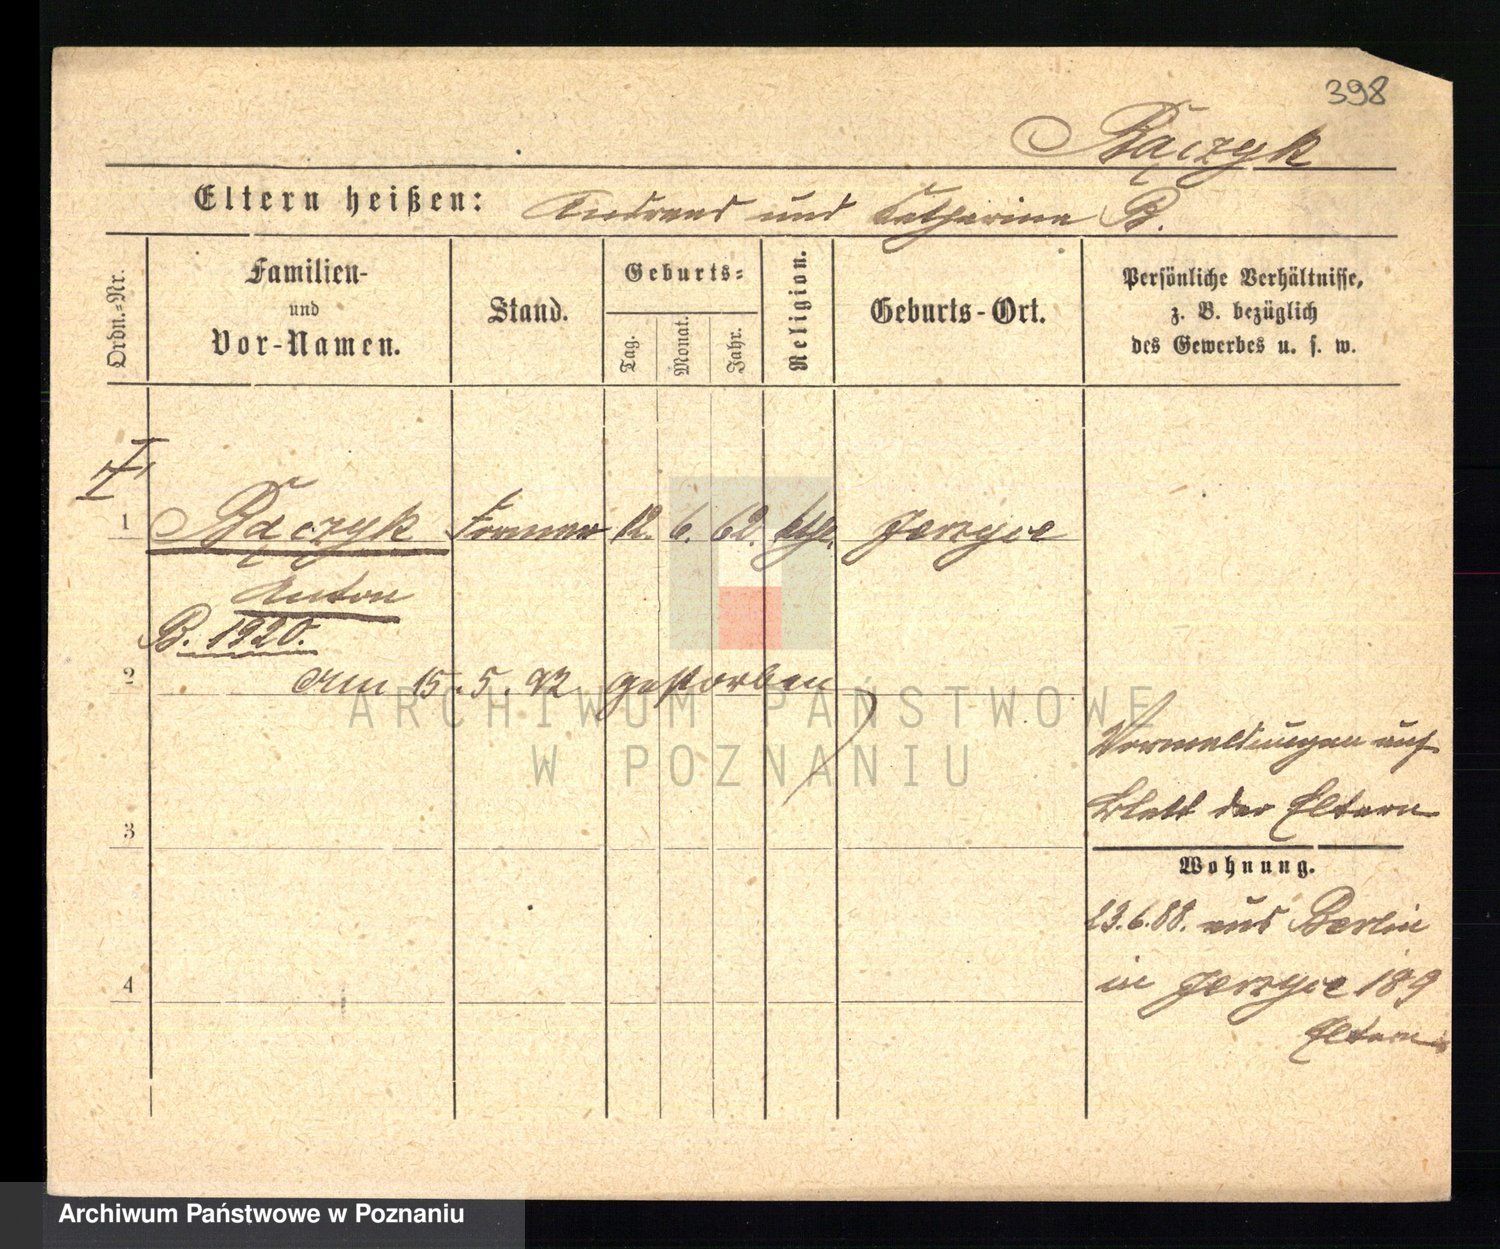 398
Bączyk
Eltern heißen: Andreas und Katharina B.
Ordn.-Nr.
Familien-
und
Vor-Namen.
Stand.
Geburts-
Tag.
Monat.
Jahr.
Religion.
Geburts-Ort.
Persönliche Verhältnisse,
z. B. bezüglich
des Gewerbes u. s. w.
1 Bączyk Former 12. 6. 62. kth. Jerzyce
Anton
B. 1920.
2 Am 15. 5. 92 gestorben
ARCHIWUM PAŃSTWOWE
W POZNANIU
Vormeldungen auf
Blatt der Eltern
3
Wohnung.
23.6.88. aus Berlin
4
in Jerzyce 189
Eltern
Archiwum Państwowe w Poznaniu